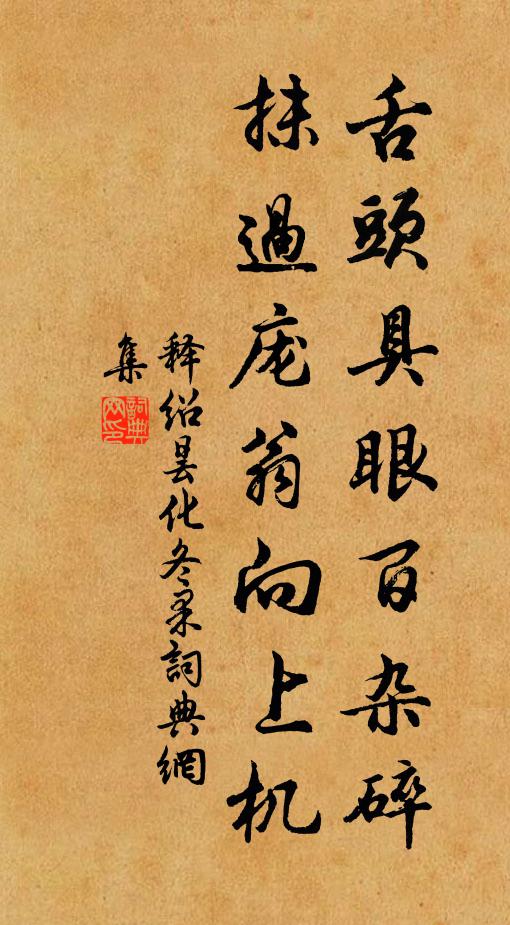 舌頭具眼百杂碎
抹過庞翁向上机
释绍昙化冬采詞典網
集
詞典
网印